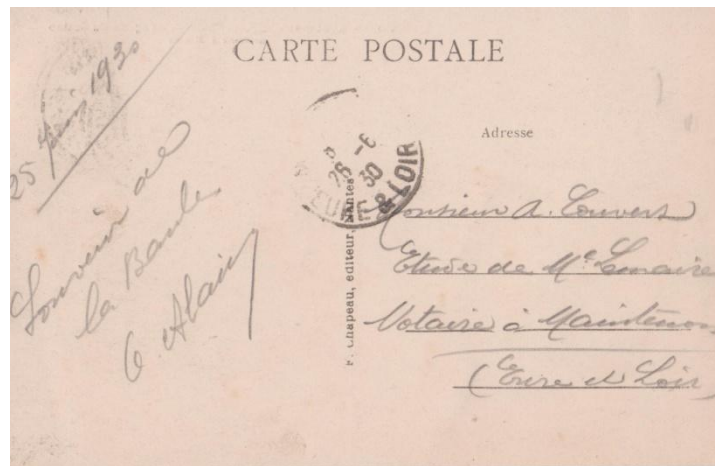 CARTE POSTALE
25 Juin 1930
Souvenir de
la Baule
Alain
F. Chapeau, editeur, Nantes
26 -6
30
EURE & LOIR
Adresse
Monsieur A. Couvert
Etude de Me Lemaire
Notaire à Maintenon
(Eure et Loir)